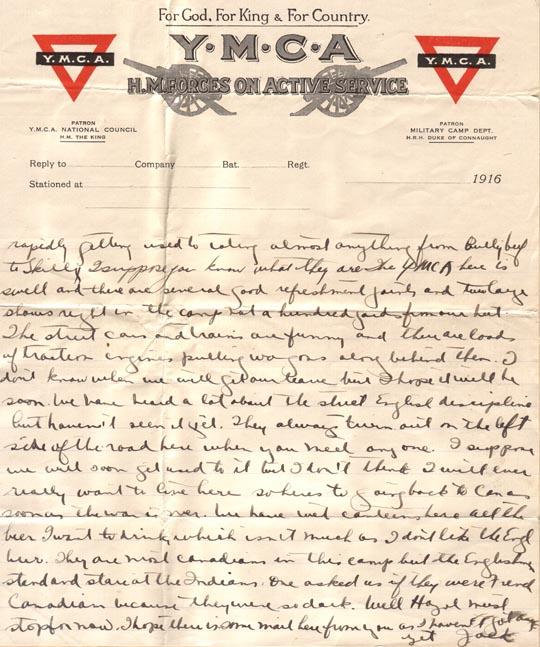 For God, For King & For Country.
Y·M·C·A
H.M. FORCES ON ACTIVE SERVICE
Y.M.C.A.
Y.M.C.A.
PATRON
Y.M.C.A. NATIONAL COUNCIL
H.M. THE KING
PATRON
MILITARY CAMP DEPT.
H.R.H. DUKE OF CONNAUGHT
Reply to Company Bat. Regt.
Stationed at 1916
rapidly getting used to eating almost anything from Bullybeef
to Skilly I suppose you know what they are. The YMCA here is
swell and there are several good refreshment joints and two large
stores right in the camp not a hundred yards from our hut.
The street cars and trains are funny and there are loads
of traction engines pulling wagons along behind them. I
don't know when we will get our leave but I hope it will be
soon. We have heard a lot about the strict English discipline
but haven't seen it yet. They always turn out on the left
side of the road here when you meet any one. I suppose
we will soon get used to it but I don't think I will ever
really want to live here so heres to going back to Can as
soon as the war is over. We have wet canteens here all the
beer I want to drink, which isn't much as I don't like the Engl
beer. They are most canadians in this camp but the Englishmen
stand and stare at the Indians. One asked us if they were French
Canadian because they were so dark. Well Hazel must
stop for now. I hope there is some mail here from you as I haven't got any
yet Jack